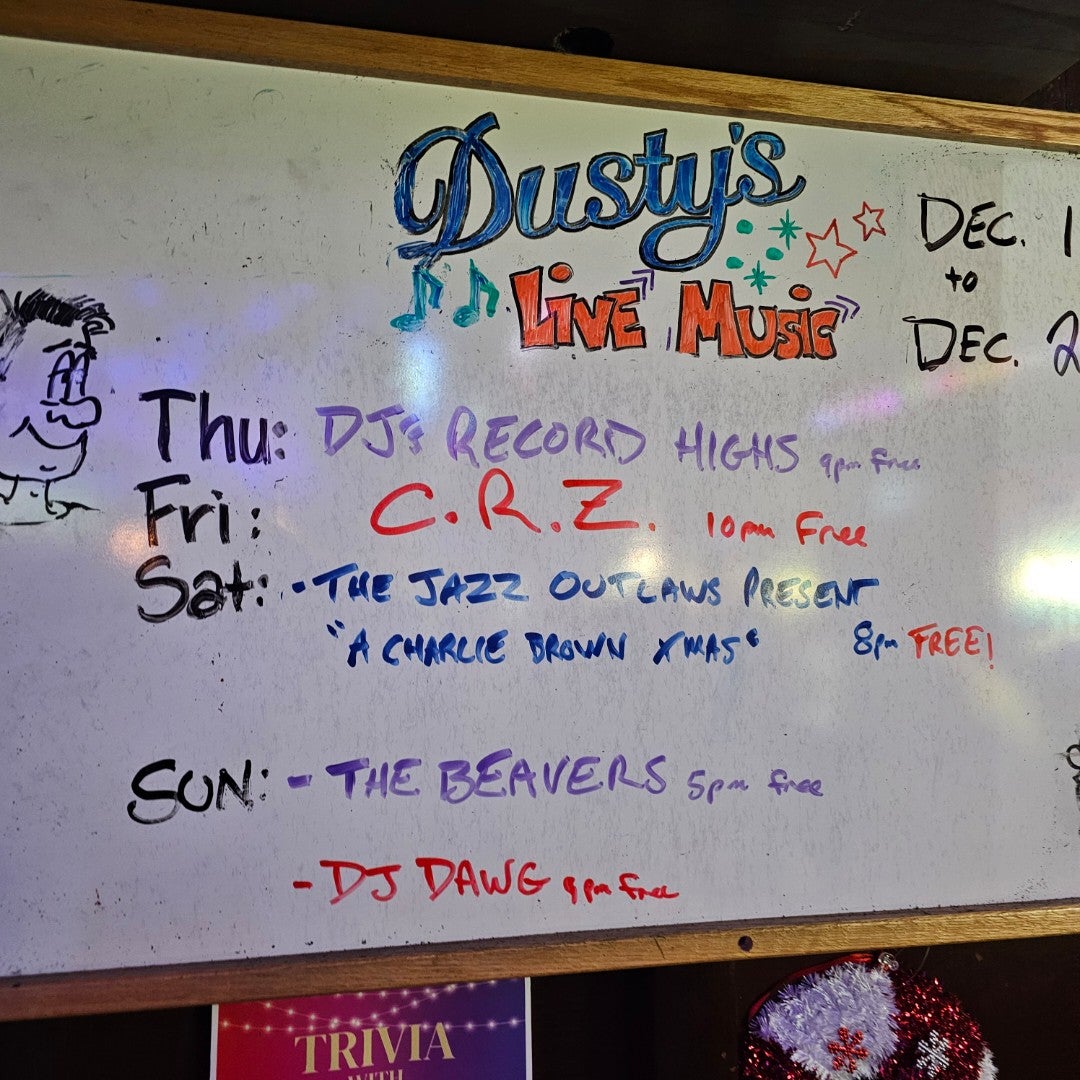 Dusty's
Live Music
DEC. 1
to
DEC. 2
Thu: DJ's RECORD HIGHS 9pm Free
Fri: C.R.Z. 10pm Free
Sat: - THE JAZZ OUTLAWS PRESENT
"A CHARLIE BROWN XMAS" 8pm FREE!
SUN: - THE BEAVERS 5pm free
- DJ DAWG 9pm free
TRIVIA
WITH